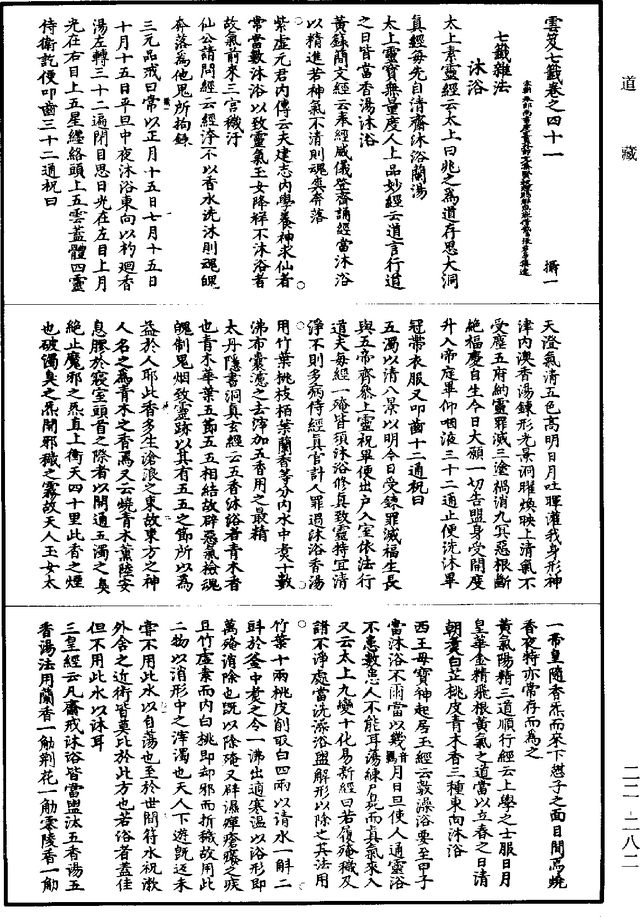 道藏
雲笈七籤卷之四十一　攝一
七籤雜法
沐浴
太上素靈經云太上曰兆之為道存思大洞
真經每先自清齋沐浴蘭湯
太上靈寶無量度人上品妙經云道言行道
之日皆當香湯沐浴
黃籙簡文經云奉經威儀登齋誦經當沐浴
以精進若神氣不清則魂與奔落
紫虛元君內傳云夫建志內學養神求仙者
常當數沐浴以致靈氣玉女降祥不沐浴者
故氣前來三宮穢汙
仙公請問經云經淬不以香水洗沐則魂魄
奔落為他鬼所拘錄
三元品戒曰常以正月十五日七月十五日
十月十五日平旦中夜沐浴東向以杓廻香
湯左轉三十二遍閉目思日光在左目上月
光在右目上五星纏絡頭上五雲蓋體四靈
侍衛訖便叩齒三十二通祝曰
天澄氣清五色高明日月吐暉灌我身形神
津內澳香湯鍊形光景洞耀煥映上清氣不
受塵五府納靈罪滅三塗禍消九冥惡根斷
絕福慶自生今日大願一切告盟身受開度
升入帝庭畢仰咽液三十二通止便洗沐畢
冠帶衣服又叩齒十二通祝曰
五濁以清八景以明今日受鍊罪滅福生長
與五帝齊參上靈祝畢便出戶入室依法行
道夫每經一殗皆須沐浴修真致靈特宜清
淨不則多病侍經真官計人罪過沐浴香湯
用竹葉桃枝栢葉蘭香等分內水中煑十數
沸布囊濾之去滓加五香用之最精
太丹隱書洞真玄經云五香沐浴者青木者
也青木華葉五節五五相結故辟惡氣檢魂
魄制鬼烟致靈跡以其有五五之節所以為
益於人耶此香多生滄浪之東故東方之神
人名之為青木之香焉又云燒青木薰陸安
息膠於寢室頭首之際者以開通五濁之臭
絕止魔邪之炁直上衝天四十里此香之煙
也破濁臭之炁開邪穢之霧故天人玉女太
一帝皇隨香炁而來下憇子之面目間焉燒
香夜特亦常存而為之
黃氣陽精三道順行經云上學之士服日月
皇華金精飛根黃氣之道當以立春之日清
朝煑白芷桃皮青木香三種東向沐浴
西王母寶神起居玉經云數澡浴要至甲子
當沐浴不爾當以幾月旦使人通靈浴
不患數患人不能耳蕩練尸臭而真氣來入
又云太上九變十化易新經曰若履殗穢及
諸不淨處當洗澡浴盥解形以除之其法用
竹葉十兩桃皮削取白四兩以清水一斛二
㪷於釜中煑之令一沸出適寒溫以浴形即
萬殗消除也既以除殗又辟濕痺瘡癢之疾
且竹虛素而內白桃即却邪而折穢故用此
二物以消形中之滓濁也天人下遊旣返未
嘗不用此水以自蕩也至於世間符水祝漱
外舍之近術皆莫比於此方也若浴者蓋佳
但不用此水以沐耳
三皇經云凡齋戒沐浴皆當盥汰五香湯五
香湯法用蘭香一觔荆花一觔零陵香一觔
二二—二八二